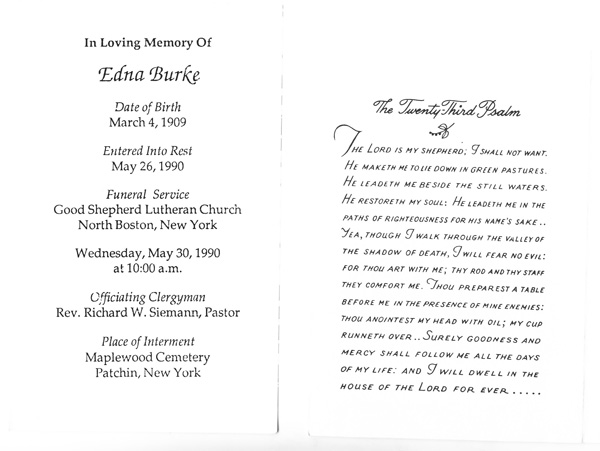 In Loving Memory Of
Edna Burke
Date of Birth
March 4, 1909
Entered Into Rest
May 26, 1990
Funeral Service
Good Shepherd Lutheran Church
North Boston, New York
Wednesday, May 30, 1990
at 10:00 a.m.
Officiating Clergyman
Rev. Richard W. Siemann, Pastor
Place of Interment
Maplewood Cemetery
Patchin, New York
The Twenty-Third Psalm
THE LORD IS MY SHEPHERD; I SHALL NOT WANT.
HE MAKETH ME TO LIE DOWN IN GREEN PASTURES.
HE LEADETH ME BESIDE THE STILL WATERS.
HE RESTORETH MY SOUL: HE LEADETH ME IN THE
PATHS OF RIGHTEOUSNESS FOR HIS NAME'S SAKE..
YEA, THOUGH I WALK THROUGH THE VALLEY OF
THE SHADOW OF DEATH, I WILL FEAR NO EVIL:
FOR THOU ART WITH ME; THY ROD AND THY STAFF
THEY COMFORT ME. THOU PREPAREST A TABLE
BEFORE ME IN THE PRESENCE OF MINE ENEMIES:
THOU ANOINTEST MY HEAD WITH OIL; MY CUP
RUNNETH OVER.. SURELY GOODNESS AND
MERCY SHALL FOLLOW ME ALL THE DAYS
OF MY LIFE: AND I WILL DWELL IN THE
HOUSE OF THE LORD FOR EVER.....